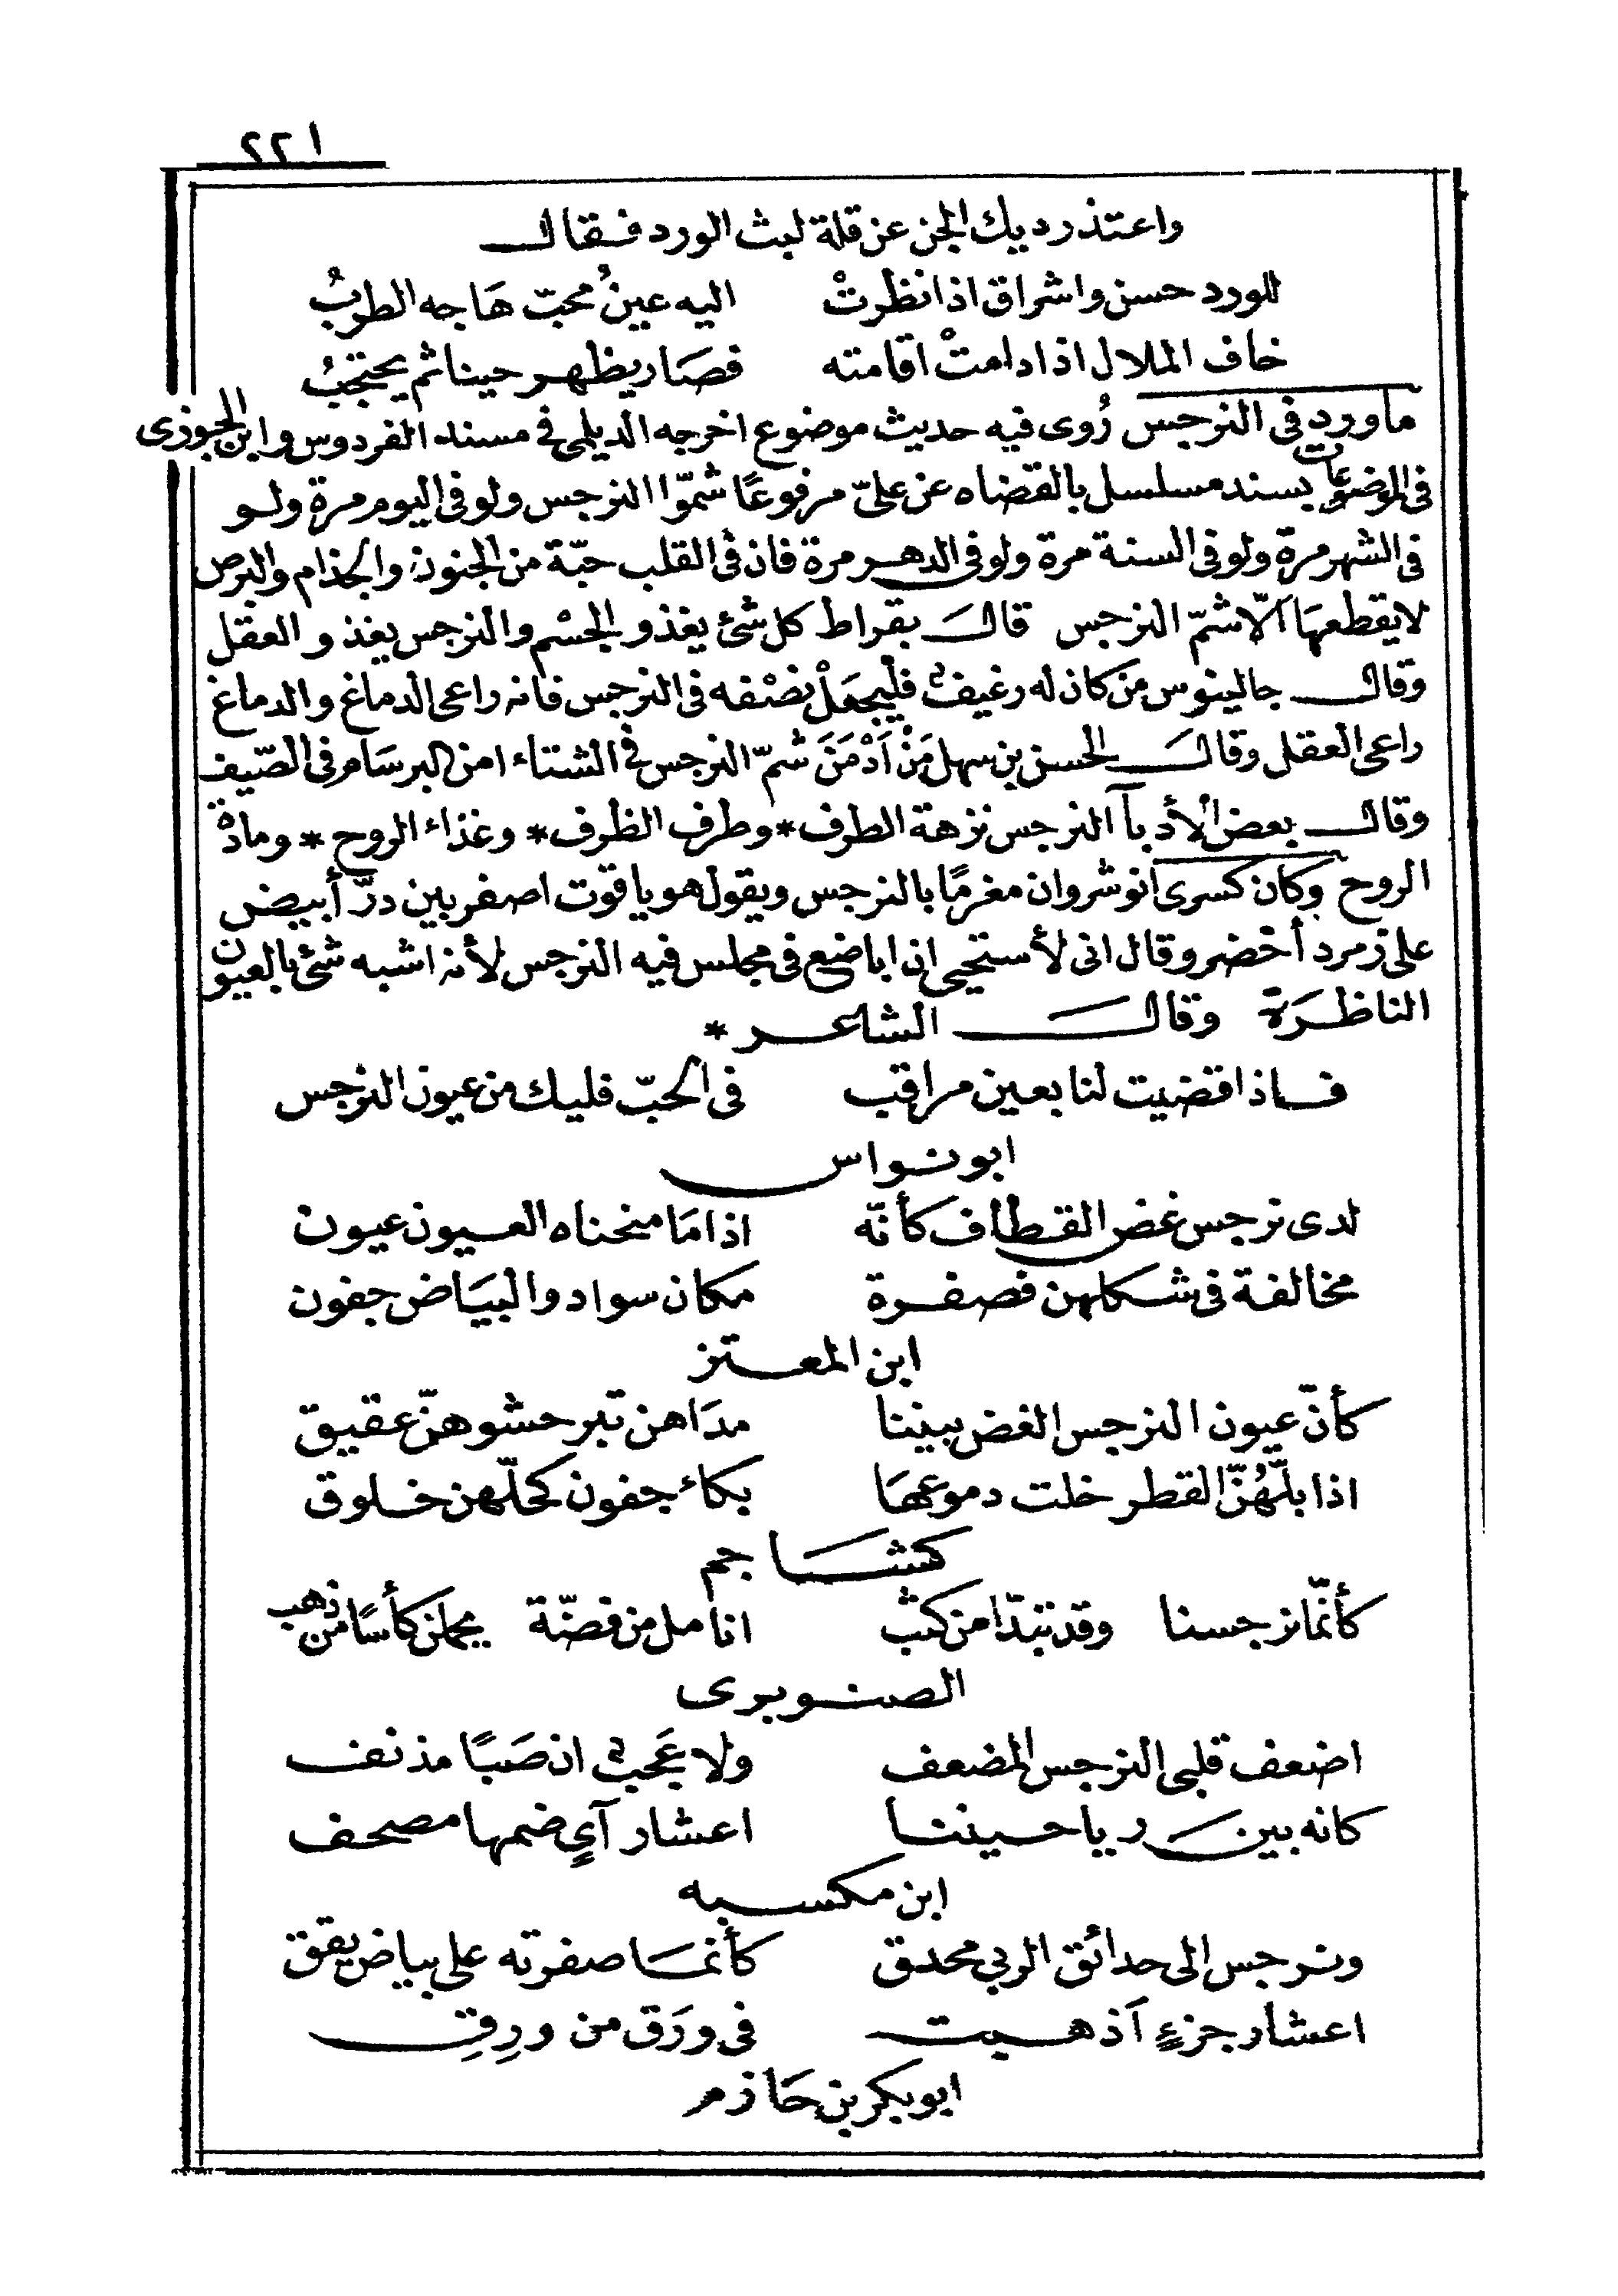 ٢٢١
واعتذر ديك الجن عن قلة لبث الورد فقال
للورد حسن واشراق اذا نظرتْ اليه عينُ محبّ هَاجه الطربُ
خاف الملال اذا دامتْ اقامته فصَار يظهر حينا ثم يحتجبُ
ما ورد فى النرجس رُوى فيه حديث موضوع اخرجه الديلمى فى مسند الفردوس وابن الجوزى
فى الموضوعات بسند مسلسل بالقضاه عن علىّ مرفوعًا شمّوا النرجس ولو فى اليوم مرة ولو
فى الشهر مرة ولو فى السنة مرة ولو فى الدهر مرة فان فى القلب حبّة من الجنون والجذام والبرص
لا يقطعهَا الّا شمّ النرجس قالَ بقراط كل شئ يغذو الجسْم والنرجس يغذو العقل
وقال جالينوس من كان له رغيف فليجعلْ نصْفه فى النرجس فانه راعى الدماغ والدماغ
راعى العقل وقالَ الحسن بن سهل مَنْ اَدْمَنَ شمّ النرجس فى الشتاء امن البرسَام فى الصّيف
وقال بعض الأدبآ النرجس نزهة الطرف * وظرف الظرف * وغذاء الروح * ومادّة
الروح وكان كسرى انوشروان مغرمًا بالنرجس ويقول هو ياقوت اصفر بين درّ أبيض
على زمرد أخضر وقال انى لأستحيى ان اباضع فى مجلس فيه النرجس لأنه اشبه شئ بالعيون
الناظرَة وقالَ الشاعر *
فاذا قضيت لنا بعين مراقب فى الحبّ فليك من عيون النرجس
ابو نواس
لدى نرجس غض القطاف كأنّه اذا مَا منحناه العيون عيون
مخالفة فى شكلهن فصفرة مكان سواد والبيَاض جفون
ابن المعتز
كأنّ عيون النرجس الغض بيننا مدَاهن تبر حشوهنّ عقيق
اذا بلّهُنّ القطر خلت دموعهَا بكاء جفون كحلّهن خلوق
كشَاجم
كأنّما نرجسنا وقد تبدّا من كثب انامل من فضّة يحملن كأسًا من ذهب
الصنوبرى
اضعف قلبى النرجس المضعف ولا عَجيب ان صَبًا مذنف
كانه بينَ رياحيننا اعشار آىٍ ضمها مصحف
ابن مكسبه
ونرجس الى حدائق الربى محدق كأنمَا صفرته على بياض يقق
اعشار جزءٍ اَذهبت فى ورَق من ورِقِ
ابو بكر بن حَازم